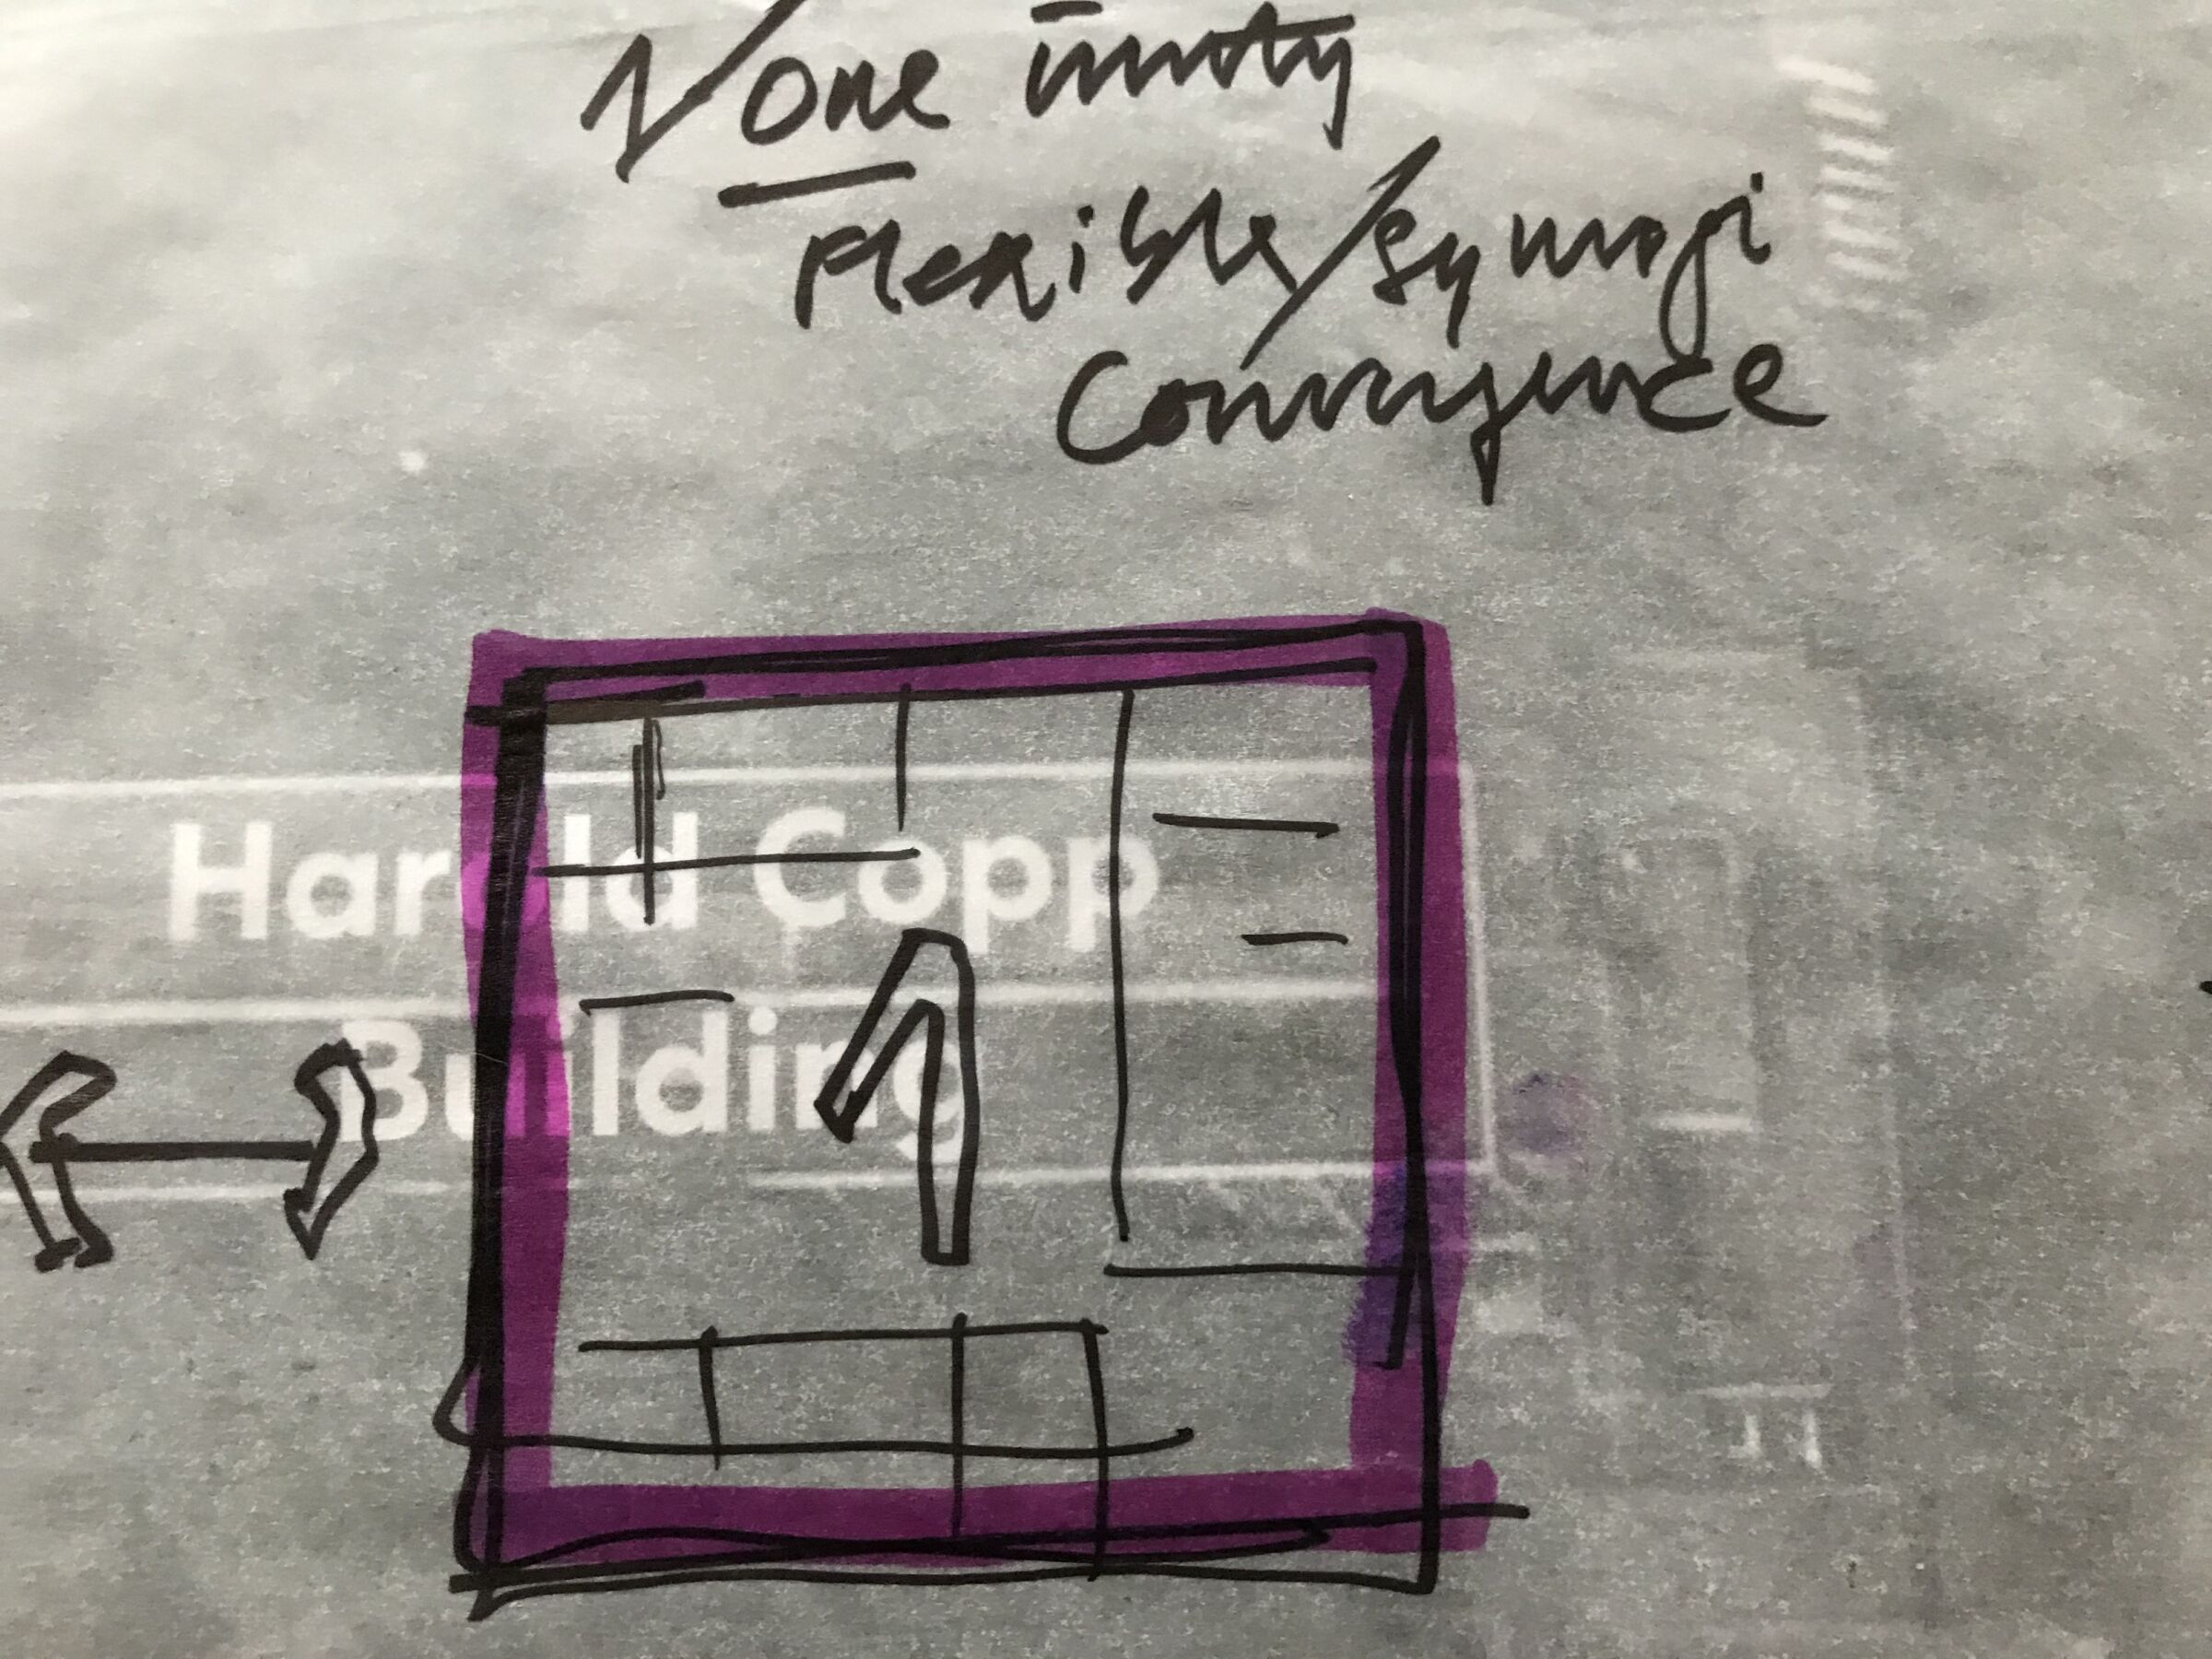 None
Flexible/synergi
Convergence
Harold Copp
Building